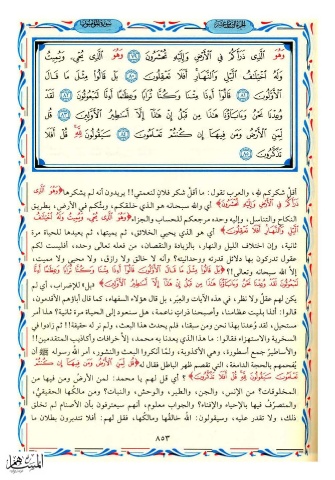 وَهُوَ ٱلَّذِى ذَرَأَكُمْ فِى ٱلْأَرْضِ وَإِلَيْهِ تُحْشَرُونَ ﴿٧٩﴾ وَهُوَ ٱلَّذِى يُحْىِۦ وَيُمِيتُ
وَلَهُ ٱخْتِلَٰفُ ٱلَّيْلِ وَٱلنَّهَارِ أَفَلَا تَعْقِلُونَ ﴿٨٠﴾ بَلْ قَالُوا۟ مِثْلَ مَا قَالَ
ٱلْأَوَّلُونَ ﴿٨١﴾ قَالُوٓا۟ أَءِذَا مِتْنَا وَكُنَّا تُرَابًا وَعِظَٰمًا أَءِنَّا لَمَبْعُوثُونَ ﴿٨٢﴾ لَقَدْ
وُعِدْنَا نَحْنُ وَءَابَآؤُنَا هَٰذَا مِن قَبْلُ إِنْ هَٰذَآ إِلَّآ أَسَٰطِيرُ ٱلْأَوَّلِينَ ﴿٨٣﴾ قُل
لِّمَنِ ٱلْأَرْضُ وَمَن فِيهَآ إِن كُنتُمْ تَعْلَمُونَ ﴿٨٤﴾ سَيَقُولُونَ لِلَّهِ قُلْ أَفَلَا
تَذَكَّرُونَ ﴿٨٥﴾
أقلَّ شكركم لله، والعرب تقول: ما أقلَّ شكر فلان لنعمتي!! يريدون أنه لم يشكرها ﴿وَهُوَ ٱلَّذِى
ذَرَأَكُمْ فِى ٱلْأَرْضِ وَإِلَيْهِ تُحْشَرُونَ﴾ أي والله سبحانه هو الذي خلقكم، وبثَّكم في الأرض، بطريق
النكاح والتناسل، وإليه وحده مرجعكم للحساب والجزاء ﴿وَهُوَ ٱلَّذِى يُحْىِۦ وَيُمِيتُ وَلَهُ ٱخْتِلَٰفُ
ٱلَّيْلِ وَٱلنَّهَارِ أَفَلَا تَعْقِلُونَ﴾ أي هو الذي يحيي الخلائق، ثم يميتها، ثم يعيدها للحياة مرة
ثانية، وإن اختلاف الليل والنهار، بالزيادة والنقصان، من فعله تعالى وحده، أفليست لكم
عقول تدركون بها دلائل قدرته ووحدانيته؟ وأنه لا خالق ولا رازق، ولا محيي ولا مميت،
إلَّا الله سبحانه وتعالى؟! ﴿بَلْ قَالُوا۟ مِثْلَ مَا قَالَ ٱلْأَوَّلُونَ قَالُوٓا۟ أَءِذَا مِتْنَا وَكُنَّا تُرَابًا وَعِظَٰمًا أَءِنَّا
لَمَبْعُوثُونَ لَقَدْ وُعِدْنَا نَحْنُ وَءَابَآؤُنَا هَٰذَا مِن قَبْلُ إِنْ هَٰذَآ إِلَّآ أَسَٰطِيرُ ٱلْأَوَّلِينَ﴾ «بل» للإضراب، أي لم
يكن لهم عقلٌ ولا نظر، في هذه الآيات والعِبَر، بل قال هؤلاء السفهاء، كما قال آباؤهم الأقدمون،
قالوا: أئذا بليت عظامنا، وأصبحنا ذرات ناعمة، هل سنعود إلى الحياة مرة ثانية؟ هذا أمر
مستحيل، لقد وُعدنا بهذا نحن ومن سبقنا، فلم يحدث هذا البعث، ولم نر له حقيقة!! ثم زادوا في
السخرية والاستهزاء فقالوا: ما هذا الذي يعدنا به محمد، إلَّا خرافات وأكاذيب المتقدمين!!
والأساطيرُ جمع أسطورة، وهي الأكذوبة، ولمَّا أنكروا البعث والنشور، أمر الله رسوله ﷺ أن
يُفحمهم بالحجة الدامغة، التي تقصم ظهر الباطل فقال له ﴿قُل لِّمَنِ ٱلْأَرْضُ وَمَن فِيهَآ إِن كُنتُمْ
تَعْلَمُونَ سَيَقُولُونَ لِلَّهِ قُلْ أَفَلَا تَذَكَّرُونَ﴾ ؟ أي قل لهم يا محمد: لمن الأرضُ ومن فيها من
المخلوقات؟ من الإنس، والجن، والطير، والوحش، والنبات؟ ومن مالكها الحقيقيُّ،
والمتصرِّفُ فيها بالإحياء والإفناء؟ والجواب معلوم، أنهم سيعترفون بأن الأصنام لم تخلق
ذلك، ولا تقدر عليه، وسيقولون: الله خالقُها ومالكُها، فقل لهم: أفلا تتدبرون بطلان ما
٨٥٣